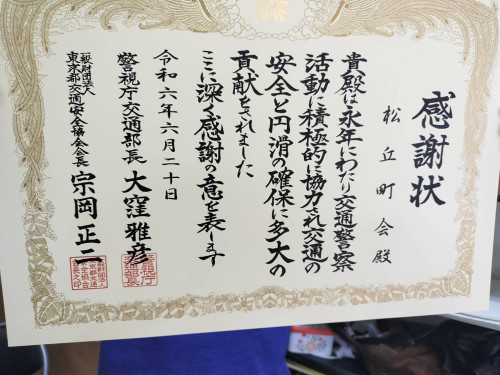 感謝状
松丘町会殿
貴殿は永年にわたり交通警察
活動に積極的に協力され交通の
安全と円滑の確保に多大の
貢献をされました
ここに深く感謝の意を表します
令和六年六月二十日
警視庁交通部長 大窪雅彦
一般財団法人
東京都交通安全協会会長 宗岡正二